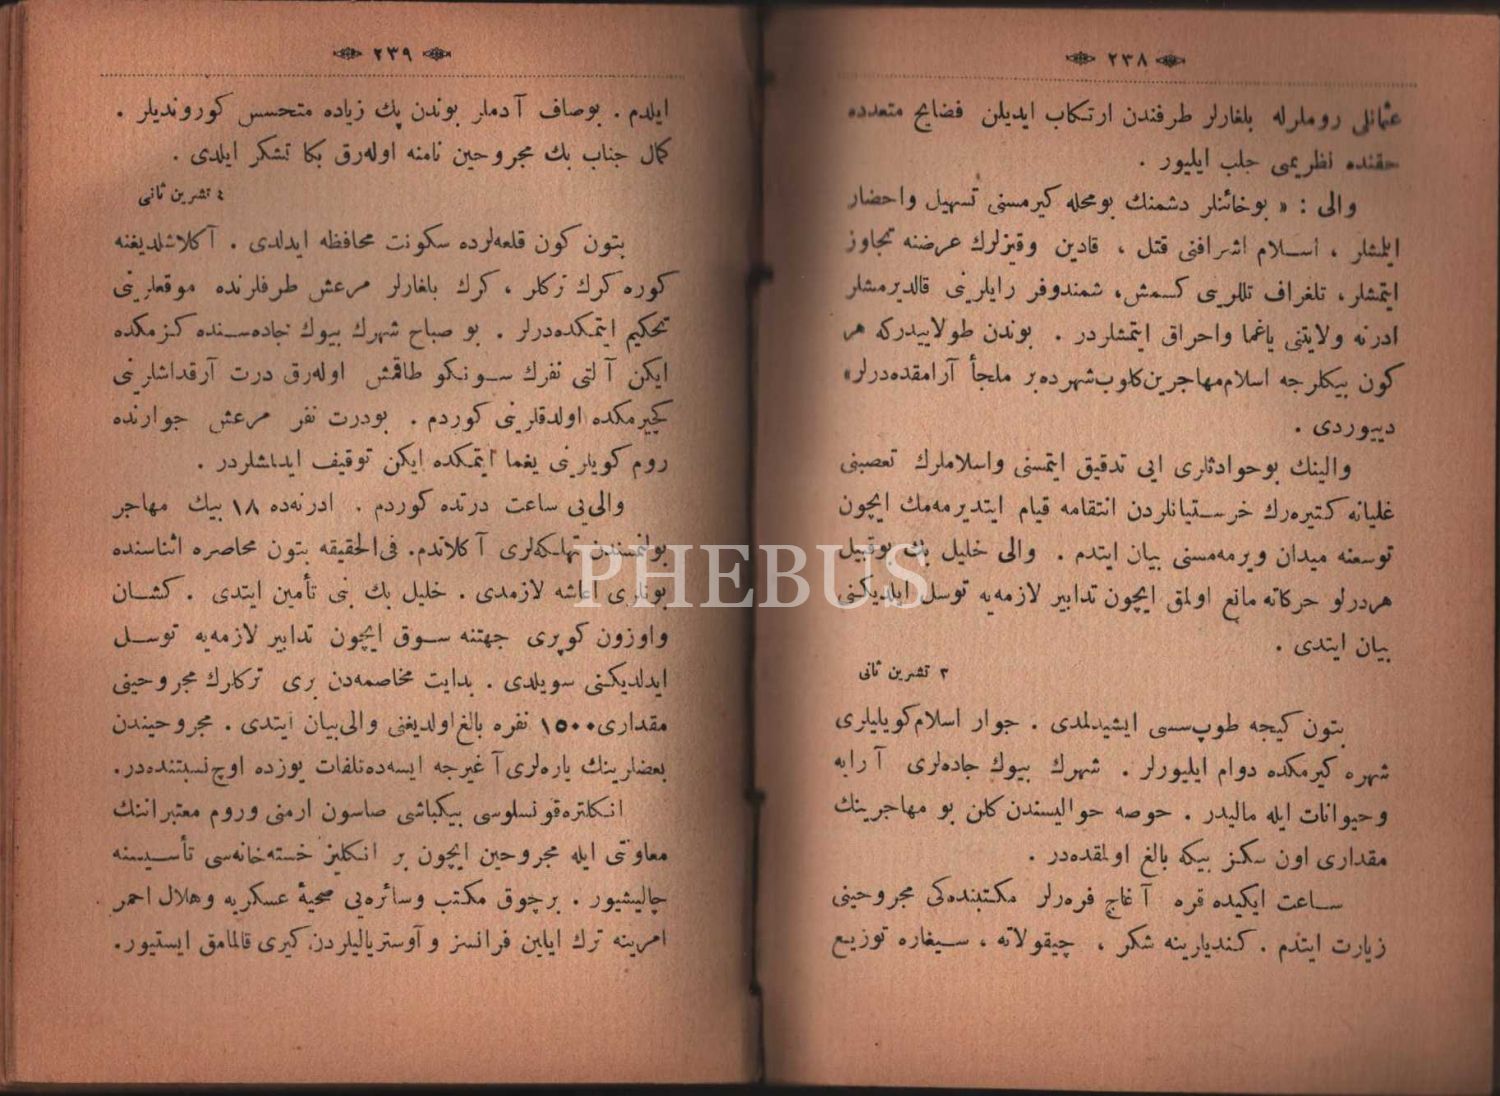 ٢٣٨
عثمانلی روملرله بلغارلر طرفندن ارتكاب ایدیلن فضایح متعدده
حقنده نظریمی جلب ایلیور .
والی : « بوخائنلر دشمنك بومحله كیرمسنی تسهیل واحضار
ایلمشلر ، اسلام اشرافنی قتل ، قادین وقیزلرك عرضنه تجاوز
ایتمشلر، تلغراف تللرینی كسمش، شمندوفر رایلرینی قالدیرمشلر
ادرنه ولایتنی یاغما واحراق ایتمشلردر . بوندن طولاییدركه هر
كون بیكلرجه اسلام مهاجرین كلوب شهرده بر ملجأ آرامقده درلر»
دییوردی .
والینك بوحوادثلری ایی تدقیق ایتمسنی واسلاملرك تعصبنی
غلیانه كتیره رك خرستیانلردن انتقامه قیام ایتدیرمه مك ایچون
توسعنه میدان ویرمه مسنی بیان ایتدم . والی خلیل بك بوقبیل
هردرلو حركاته مانع اولمق ایچون تدابیر لازمه یه توسل ایلدیكنی
بیان ایتدی .
٣ تشرین ثانی
بتون كیجه طوپ سسی ایشیدلمدی . جوار اسلام كویلیلری
شهره كیرمكده دوام ایلیورلر . شهرك بیوك جاده لری آرابه
وحیوانات ایله مالیدر . حوصه حوالیسندن كلن بو مهاجرینك
مقداری اون سكز بیكه بالغ اولمقده در .
ساعت ایكیده قره آغاج فره رلر مكتبنده كی مجروحینی
زیارت ایتدم . كندیلرینه شكر ، چیقولاته ، سیغاره توزیع
٢٣٩
ایلدم . بوصاف آدملر بوندن پك زیاده متحسس كوروندیلر .
كمال جناب بك مجروحین نامنه اوله رق بكا تشكر ایلدی .
٤ تشرین ثانی
بتون كون قلعه لرده سكونت محافظه ایدلدی . آكلاشلدیغنه
كوره كرك تركلر ، كرك بلغارلر مرعش طرفلرنده موقعلرینی
تحكیم ایتمكده درلر . بو صباح شهرك بیوك جاده سنده كزمكده
ایكن آلتی نفرك سونكو طاقمش اوله رق درت آرقداشلرینی
كچیرمكده اولدقلرینی كوردم . بودرت نفر مرعش جوارنده
روم كویلرینی یغما ایتمكده ایكن توقیف ایدلمشلردر .
والی یی ساعت درتده كوردم . ادرنه ده ١٨ بیك مهاجر
بولنمسندن تهلكه لری آكلاتدم. فی الحقیقه بتون محاصره اثناسنده
بونلری اعاشه لازمدی . خلیل بك بنی تأمین ایتدی . كشان
واوزون كوپری جهتنه سوق ایچون تدابیر لازمه یه توسل
ایدلدیكنی سویلدی . بدایت مخاصمه دن بری تركلرك مجروحینی
مقداری ١٥٠٠ نفره بالغ اولدیغنی والی بیان ایتدی . مجروحیندن
بعضلرینك یاره لری آغیرجه ایسه ده تلفات یوزده اوچ نسبتنده در.
انكلتره قونسلوسی بیكباشی صاسون ارمنی وروم معتبراننك
معاونتی ایله مجروحین ایچون بر انكلیز خسته خانه سی تأسیسنه
چالیشیور . برچوق مكتب وسائره یی صحیهٔ عسكریه وهلال احمر
امرینه ترك ایلین فرانسز و آوستریالیلردن كیری قالمامق ایستیور.
PHEBUS